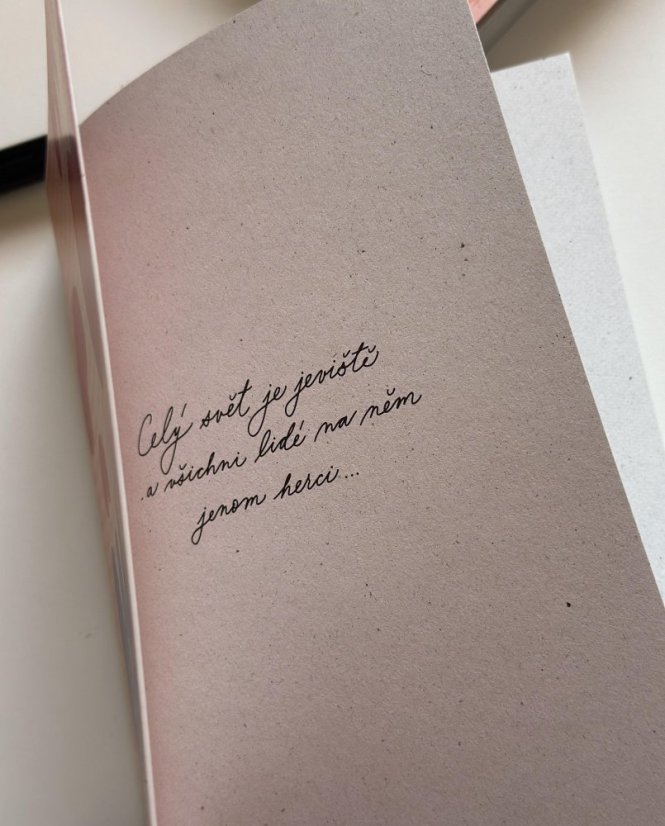 Celý svět je jeviště
a všichni lidé na něm
jenom herci...